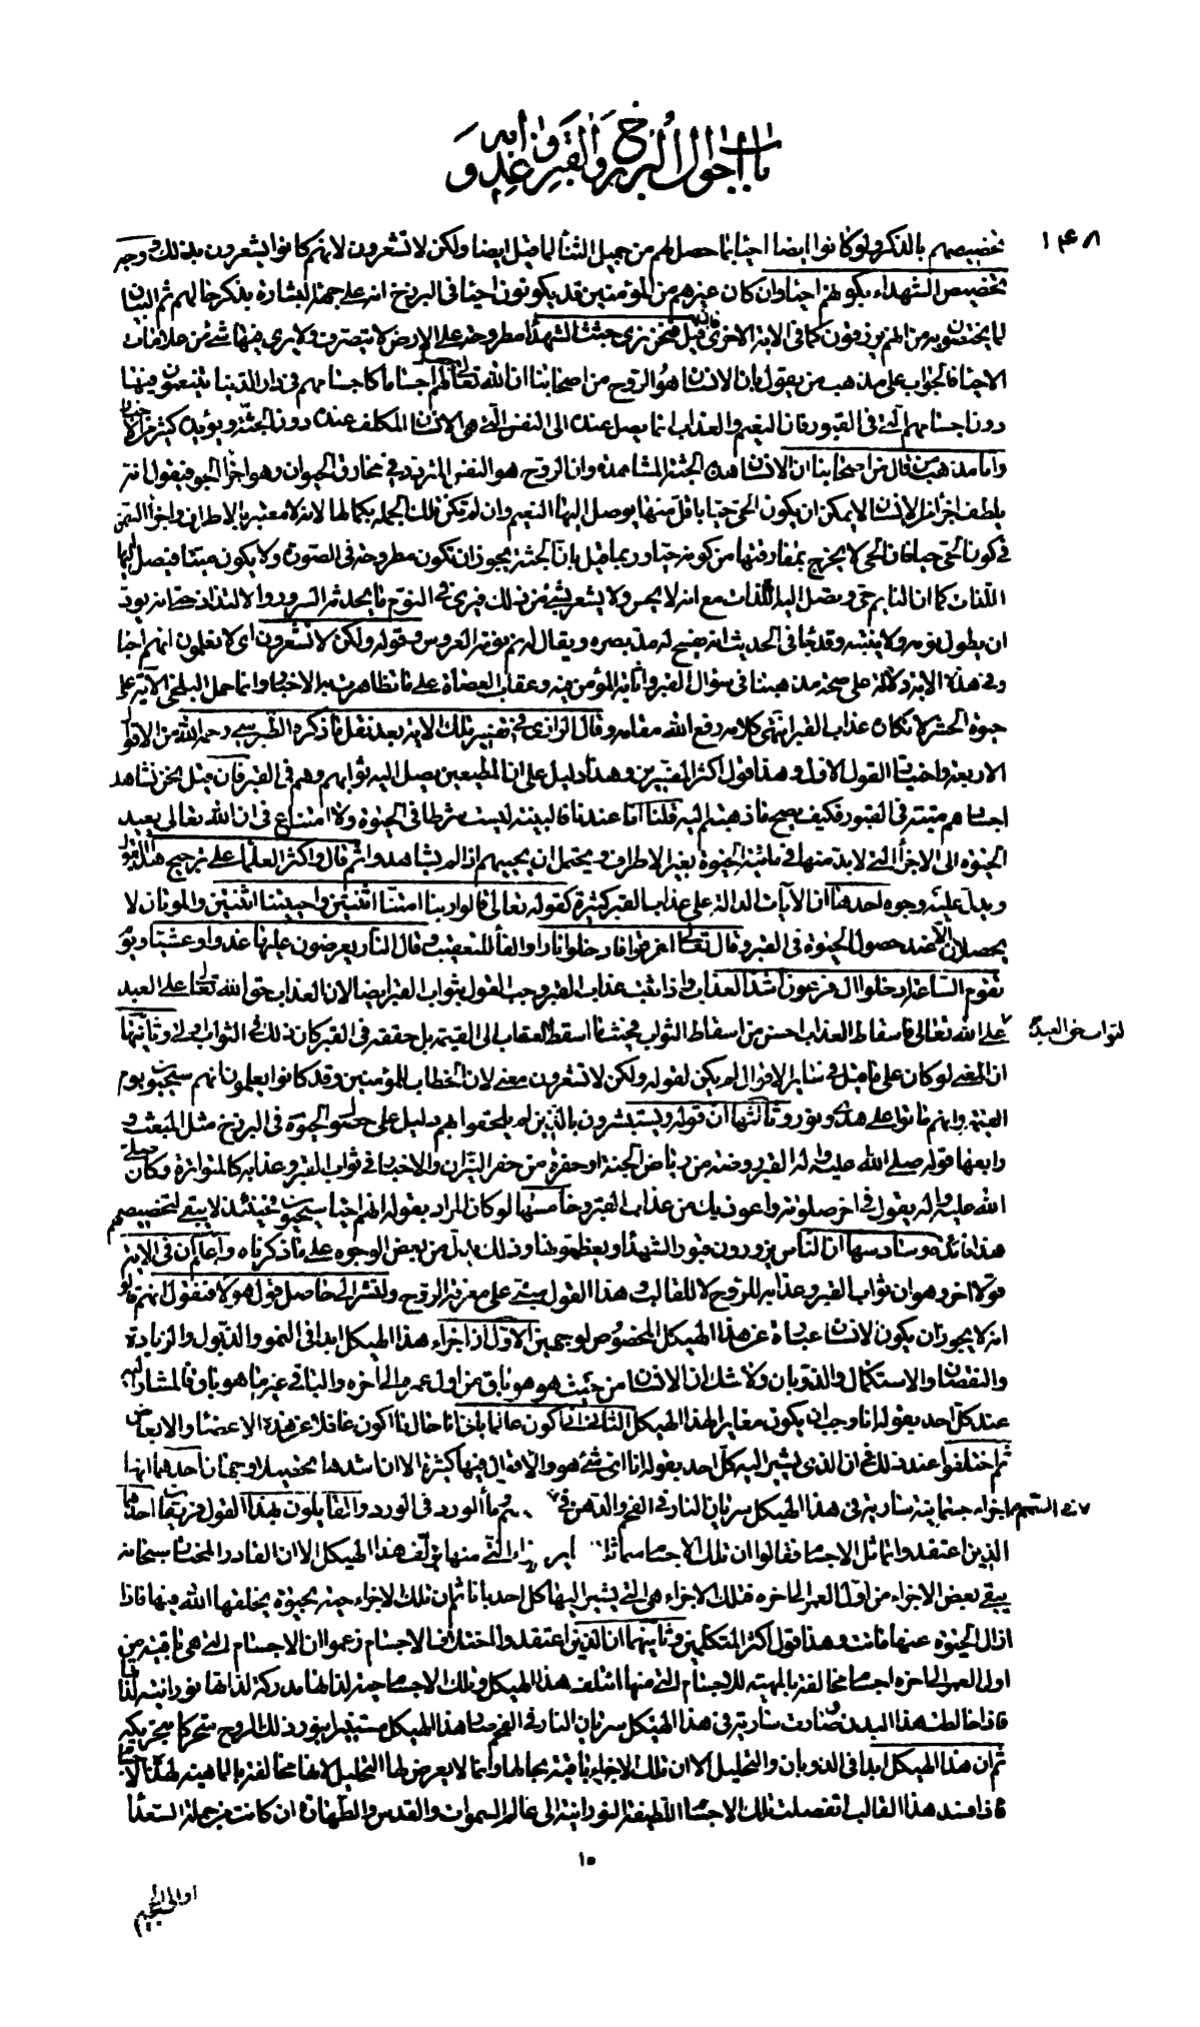 باب احوال البرزخ والقبر وعذابه و
١٤٨
تخصيصهم بالذكر ولو كانوا ايضا احياء بما حصل لهم من جميل الثناء لما قيل ايضا ولكن لا تشعرون لانهم كانوا يشعرون بذلك ووجه
تخصيص الشهداء بكونهم احياء وان كان غيرهم من المؤمنين قد يكونون احياء في البرزخ انه على جهة البشارة بذكر حالهم ثم البيان
لما يختصون به من انهم يرزقون كما في الاية الاخرى فان قيل فنحن نرى جثث الشهداء مطروحة على الارض لا يتصرف ولا يرى فيها شئ من علامات
الاحياء فالجواب على مذهب من يقول بان الانسان هو الروح من اصحابنا ان الله تعالى جعل لهم اجساما كاجسامهم في دار الدنيا يتنعمون فيها
دون اجسامهم التي في القبور فان النعيم والعذاب انما يصل عنده الى النفس التي هي الانسان المكلف عنده دون الجثة ويؤيده كثير من الاخبار
واما مذهب من قال من اصحابنا ان الانسان هذه الجثة المشاهدة وان الروح هو النفس المتردد في مخارق الحيوان وهو اجزاء الجو فيقول انه
يلطف اجزاء من الانسان لا يمكن ان يكون الحي حيا باقل منها يوصل اليها النعيم وان لم تكن تلك الجملة بكمالها لانه لا معتبر بالاطراف واجزاء السمن
في كون الحي حيا فان الحي لا يخرج بمفارقتها من كونه حيا وربما قيل بان الجثة يجوز ان تكون مطروحة في الصورة ولا يكون ميتا فيصل اليها
اللذات كما ان النايم حي ويصل اليه اللذات مع انه لا يحس ولا يشعر بشئ من ذلك فيرى في النوم ما يجد به السرور والالتذاذ حتى انه يود
ان يطول نومه ولا ينتبه وقد جاء في الحديث انه يفسح له مد بصره ويقال له نم نومة العروس وقوله ولكن لا تشعرون اى لا تعلمون انهم احياء
وفي هذه الاية دلالة على صحة مذهبنا في سؤال القبر واثابة المؤمن فيه وعقاب العصاة على ما تظاهرت به الاخبار وانما حمل البلخي الاية على
حيوة الحشر لانكاره عذاب القبر انتهى كلامه رفع الله مقامه وقال الرازي في تفسير تلك الاية بعد نقل ما ذكره الطبرسي رحمه الله من الاقوال
الاربعة واختيار القول الاول وهذا قول اكثر المفسرين وهذا دليل على ان المطيعين يصل اليهم ثوابهم وهم في القبر فان قيل نحن نشاهد
اجسامهم ميتة في القبور فكيف يصح ما ذهبتم اليه قلنا اما عندنا فالبينة ليست شرطا في الحيوة ولا امتناع في ان الله تعالى يعيد
الحيوة الى الاجزاء التي لابد منها في مائية الحيوة بغير الاطراف ويحتمل ان يحييهم اذا لم يشاهدوا ثم قال واكثر العلماء على ترجيح هذا القول
ويدل عليه وجوه احدها ان الآيات الدالة على عذاب القبر كثيرة كقوله تعالى قالوا ربنا امتنا اثنتين واحييتنا اثنتين والموتان لا
يحصلان الا عند حصول الحيوة في القبر وقال تعالى اغرقوا فادخلوا نارا والفاء للتعقيب وقال النار يعرضون عليها غدوا وعشيا ويوم
تقوم الساعة ادخلوا ال فرعون اشد العذاب واذا ثبت عذاب القبر وجب القول بثواب القبر ايضا لان العذاب حق الله تعالى على العبد
والثواب حق العبد
على الله تعالى فاسقاط العذاب احسن من اسقاط الثواب فحيث ما اسقط العقاب الى القيمة بل حققه في القبر كان ذلك في الثواب اولى وثانيها
ان المعنى لو كان على ما قيل في سائر الاقوال لم يكن لقوله ولكن لا تشعرون معنى لان الخطاب للمؤمنين وقد كانوا يعلمون انهم سيحيون يوم
القيمة وانهم ماتوا على هدى ونور وثالثها ان قوله ويستبشرون بالذين لم يلحقوا بهم دليل على حصول الحيوة في البرزخ مثل المبعث و
رابعها قوله صلى الله عليه واله القبر روضة من رياض الجنة او حفرة من حفر النيران والاخبار في ثواب القبر وعذابه كالمتواترة وكان صلى
الله عليه واله يقول في اخر صلوته واعوذ بك من عذاب القبر وخامسها لو كان المراد بقوله انهم احياء سيحيون فحينئذ لا يبقى لتخصيصهم
هذا فائدة وسادسها ان الناس يزورون قبور الشهداء ويعظمونها وذلك يدل من بعض الوجوه على ما ذكرناه واعلم ان في الاية
قولا اخر وهو ان ثواب القبر وعذابه للروح لا للقالب وهذا القول مبني على معرفة الروح ولنشر الى حاصل قول هولاء فنقول انهم قالوا
انه لا يجوز ان يكون الانسان عبارة عن هذا الهيكل المخصوص لوجهين الاول ان اجزاء هذا الهيكل ابدا في النمو والذبول والزيادة
والنقصان والاستكمال والذوبان ولا شك ان الانسان من حيث هو هو باق من اول عمره الى آخره والباقي غير ما هو باق فالمشار اليه
عند كل احد بقوله انا وجب ان يكون مغايرا لهذا الهيكل الثاني اني اكون عالما باني انا حال ما اكون غافلا عن هذه الاعضاء والابعاض
ثم اختلفوا عند ذلك في ان الذي يشير اليه كل احد بقوله انا اى شئ هو والاقوال فيها كثيرة الا ان اشدها تحصيلا وجهان احدهما انها
اجزاء جسمانية سارية في هذا الهيكل سريان النار في الفحم والدهن في السمسم وماء الورد في الورد والقايلون بهذا القول فريقان احدهما
الذين اعتقدوا تماثل الاجسام فقالوا ان تلك الاجسام مماثلة الاجزاء التي منها يؤلف هذا الهيكل الا ان القادر المختار سبحانه
يبقى بعض الاجزاء من اول العمر الى اخره فتلك الاجزاء هي التي يشير اليها كل احد بانا ثم ان تلك الاجزاء حية بحيوة يخلقها الله فيها فاذا
ازال الحيوة عنها ماتت وهذا قول اكثر المتكلمين وثانيهما ان الذين اعتقدوا اختلاف الاجسام زعموا ان الاجسام التي هي باقية من
اول العمر الى اخره اجسام مخالفة بالمهية للاجسام التي منها ائتلف هذا الهيكل وتلك الاجسام حية لذاتها مدركة لذاتها نورانية لذاتها
فاذا خالطت هذا البدن وصارت سارية في هذا الهيكل سريان النار في الفحم صار هذا الهيكل مستنيرا بنور ذلك الروح متحركا بتحريكه
ثم ان هذا الهيكل ابدا في الذوبان والتحليل الا ان تلك الاجزاء باقية بحالها وانما لا يعرض لها التحليل لانها مخالفة بالماهية لهذه الاجسام
فاذا فسد هذا القالب انفصلت تلك الاجسام اللطيفة النورانية الى عالم السموات والقدس والطهارة ان كانت من جملة السعداء
١٥
او الى الجحيم